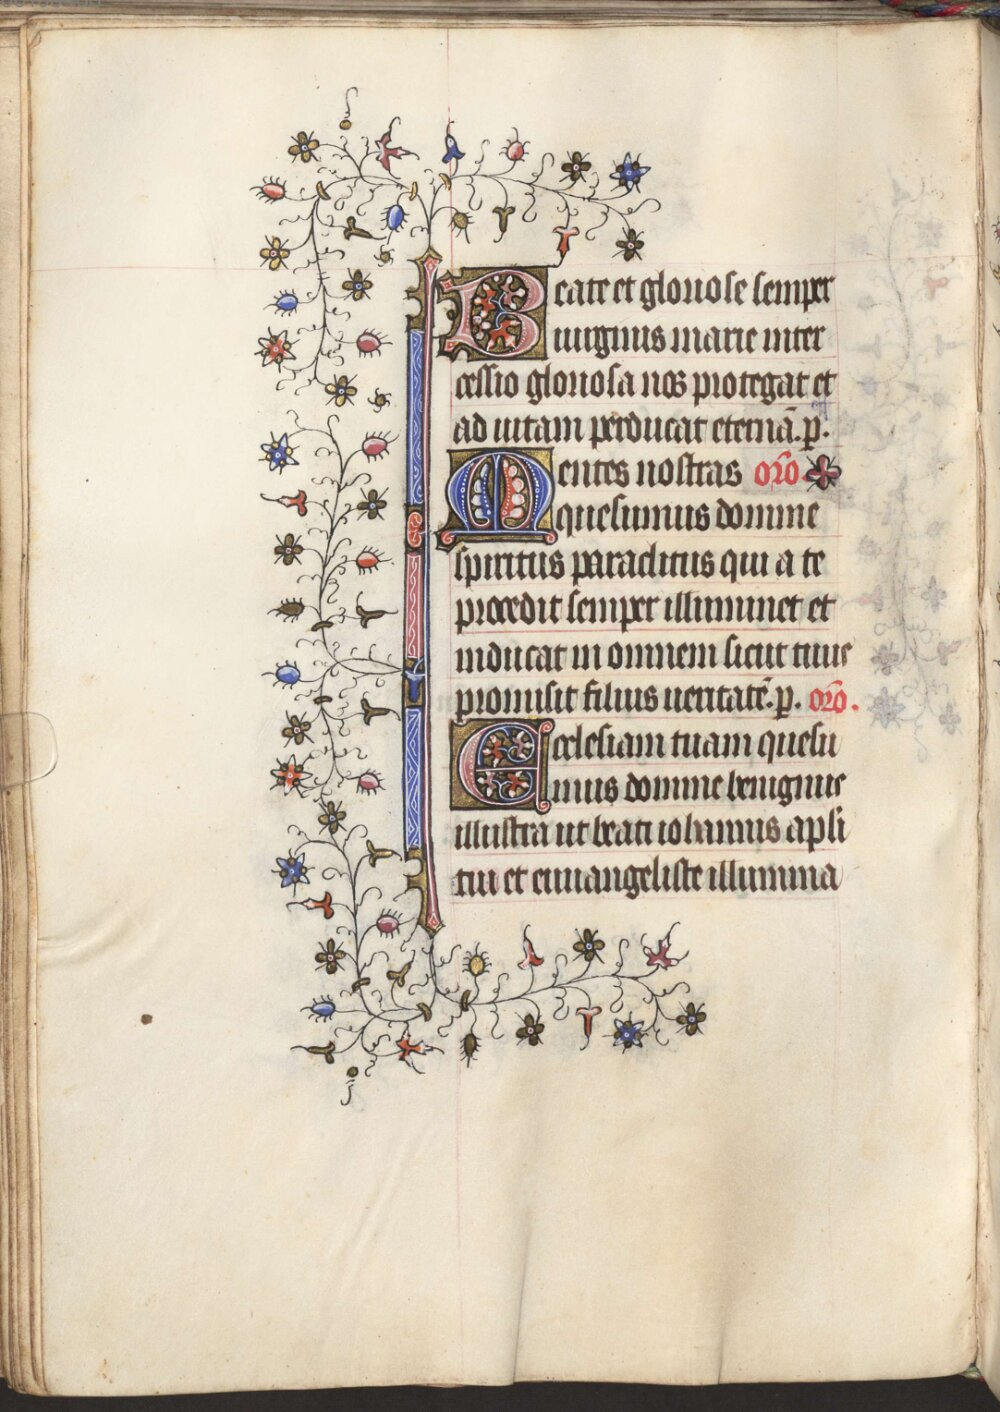 Beate et gloriose semper
uirginis marie inter
cessio gloriosa nos protegat et
ad uitam perducat eternā. p.
Mentes nostras orō
quesumus domine
spiritus paraclitus qui a te
procedit semper illuminet et
inducat in omnem sicut tuus
promisit filius ueritatē. p. orō.
Ecclesiam tuam quesu
mus domine benignus
illustra ut beati iohannis apli
tui et euuangeliste illumina